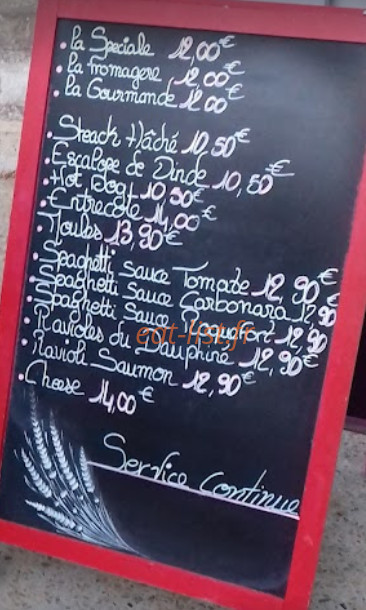 • La Speciale 12,00€
• La fromagere 12,00€
• La Gourmande 12,00€
• Steack Hâché 10,50€
• Escalope de Dinde 10,50€
• Hot Dogt 10,50€
• Entrecote 14,00€
• Moules 13,90€
• Spaghetti sauce Tomate 12,90€
Spaghetti Sauce Carbonara 12,90
Spaghetti Sauce Roquefort 12,90
• Ravioles du Dauphiné 12,90€
• Ravioli Saumon 12,90€
• Cheese 14,00€
eat-list.fr
Service Continue